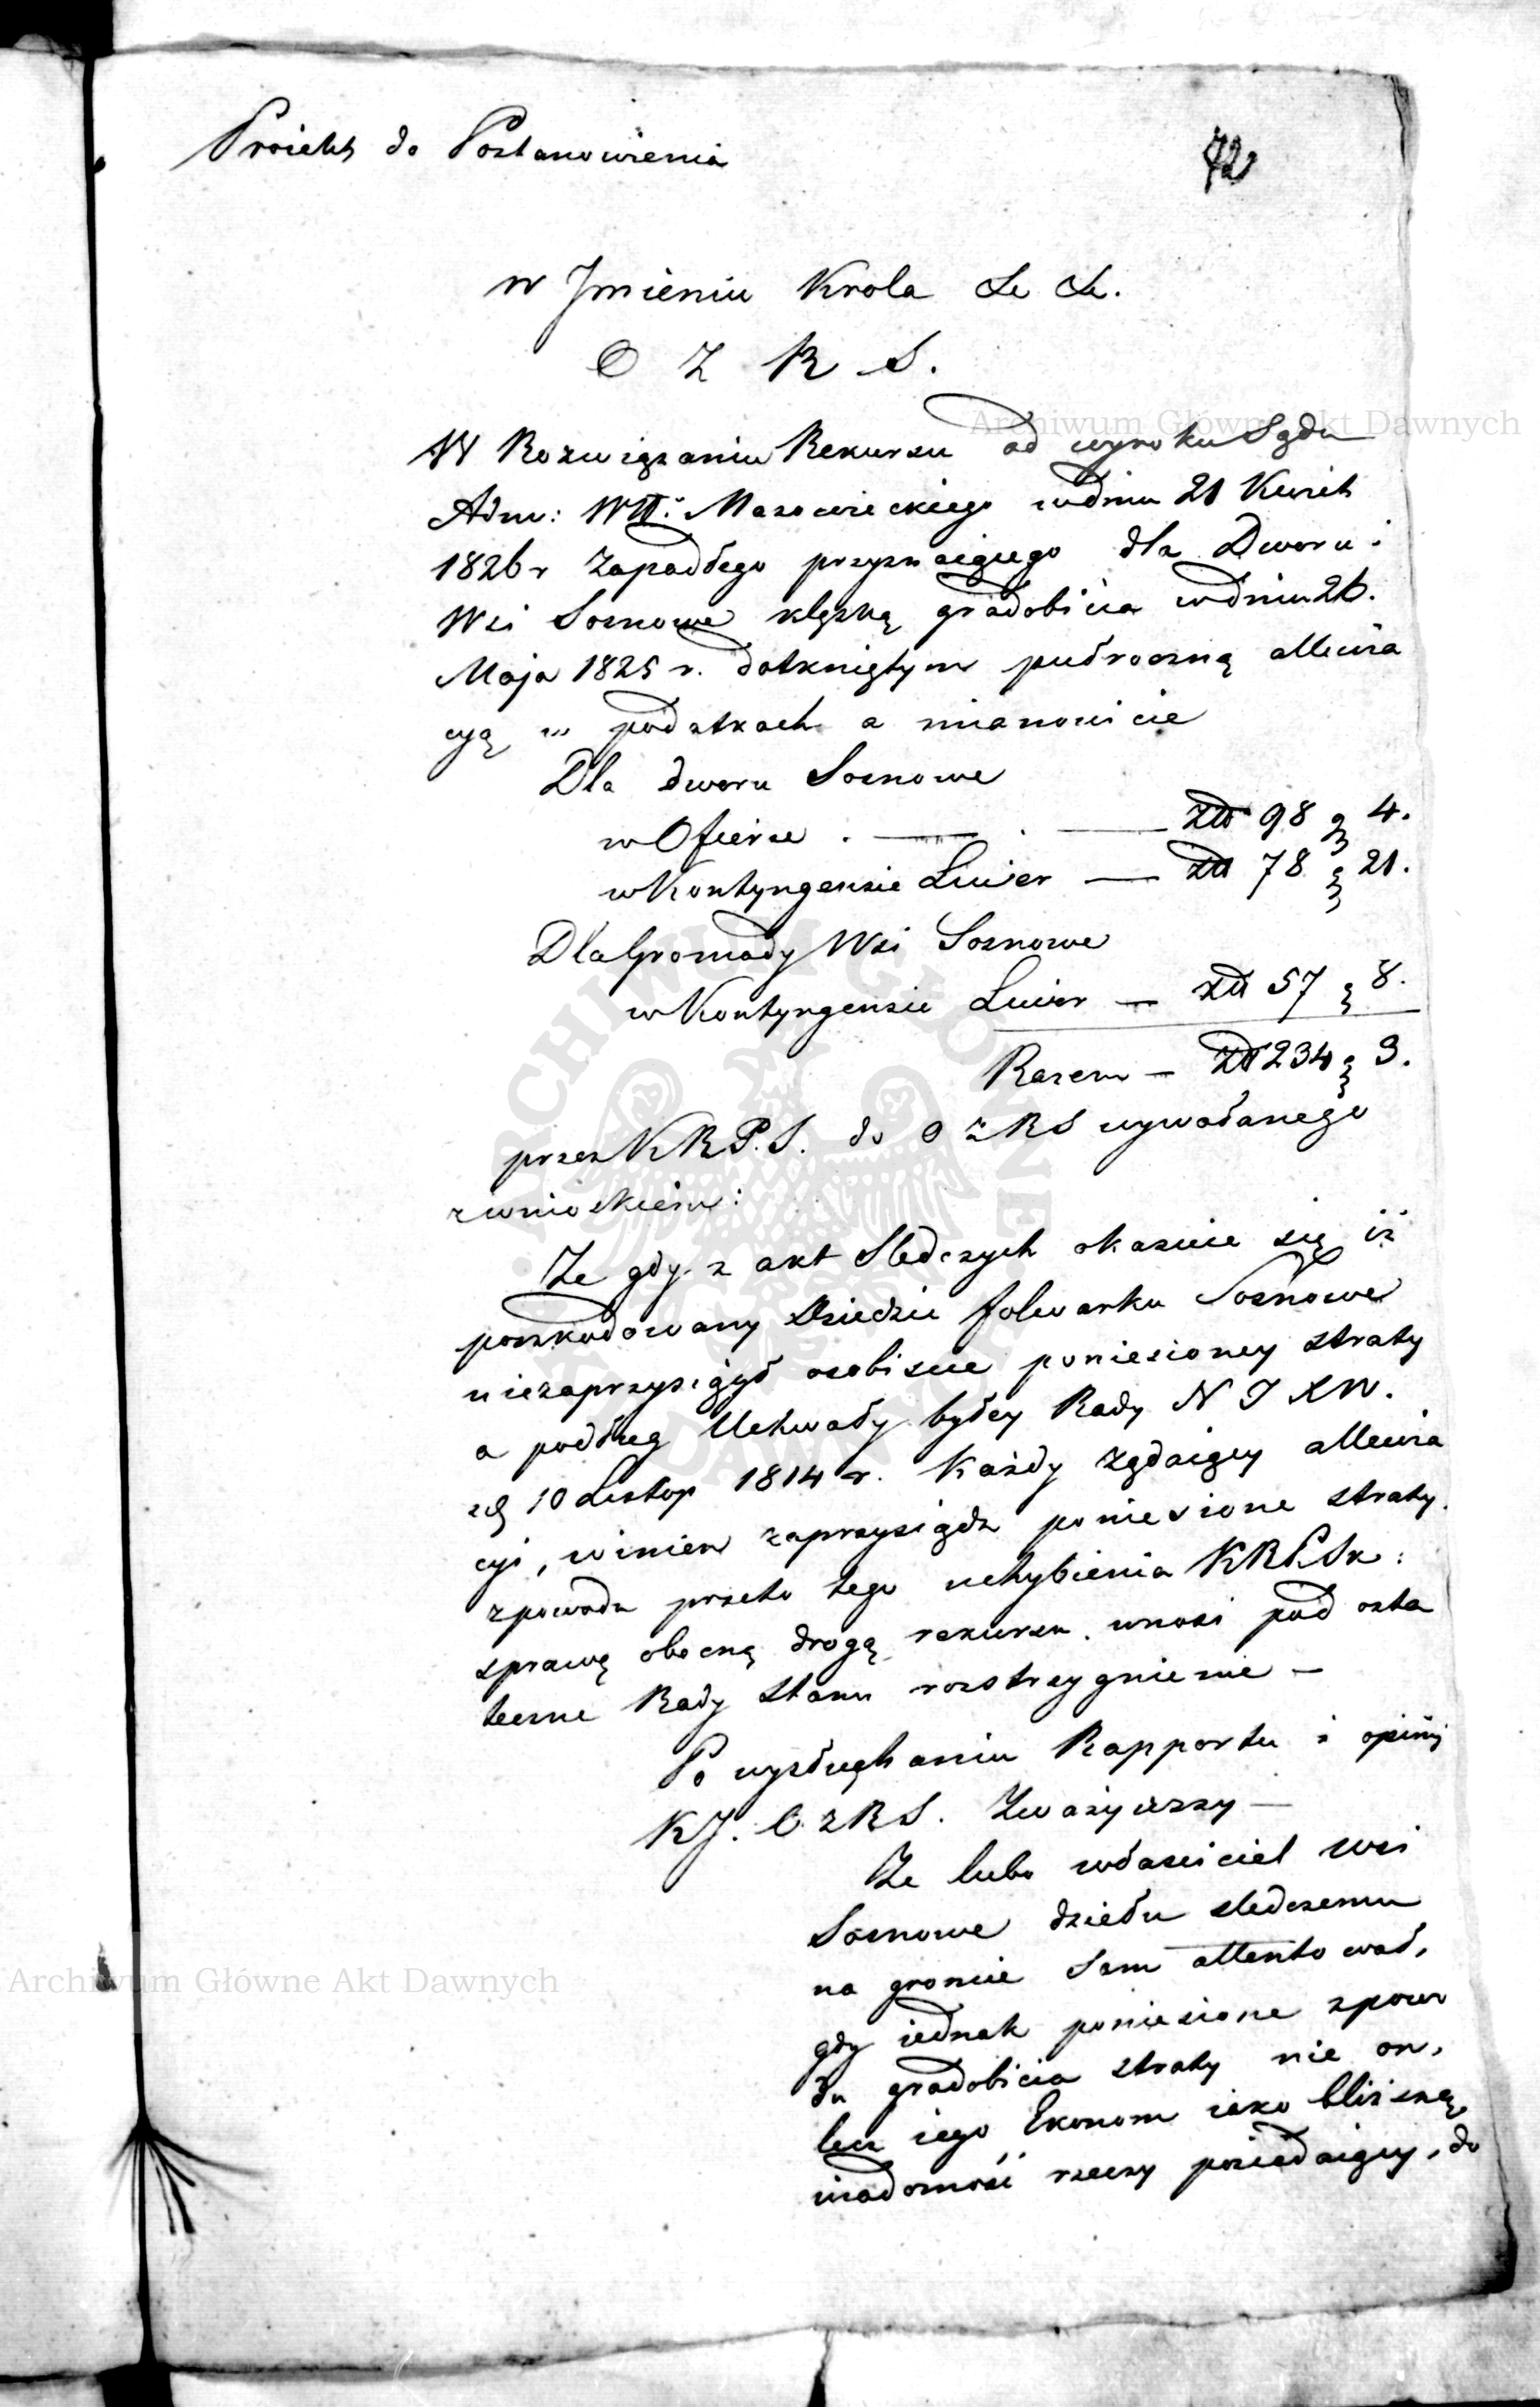 Proiekt do Postanowienia
72
w Jmieniu Krola &c &c.
O Z R S.
W Rozwiązaniu Rekursu od wyroku Sądu
Adm: WW: Mazowieckiego w dniu 21 Kwiet
1826 r zapadłego przyznaiącego dla Dworu i
Wsi Sosnowe klęską gradobicia w dniu 26.
Maja 1825 r. dotkniętym pułroczną allewia
cyą w podatkach a mianowicie
Dla dworu Sosnowe
w Ofierze . — . — złł 98 g 4.
w Kontyngensie Liwer — złł 78 g 21.
Dla Gromady Wsi Sosnowe
w Kontyngensie Liwer — złł 57 g 8.
Razem — złł 234 g 3.
przez K R P. S. do O z R S wywołanego
z wnioskiem:
Ze gdy z akt Sledczych okazuie się iż
poszkodowany Dziedzic folwarku Sosnowe
niezaprzysiągł osobiscie poniesioney straty
a podług Uchwały byłey Rady N J X W.
z d 10 Listop 1814 r. Każdy żądaiący allewia
cyi, winien zaprzysiądz poniesione straty.
z powodu przeto tego uchybienia K R P i Sk:
sprawę obecną drogą rekursu wnosi pod osta
teczne Rady Stanu rozstrzygnienie —
Po wysłuchaniu Rapportu i opinij
K J. O z R S. Zważywszy —
Ze lubo właściciel wsi
Sosnowe dziełu sledczemu
na gruncie Sam attentował,
gdy iednak poniesione z powo
du gradobicia straty nie on,
lecz iego Ekonom iako bliższą
wiadomość rzeczy posiadaiący, do
Archiwum Główne Akt Dawnych
Archiwum Główne Akt Dawnych
ARCHIWUM GŁÓWNE AKT DAWNYCH